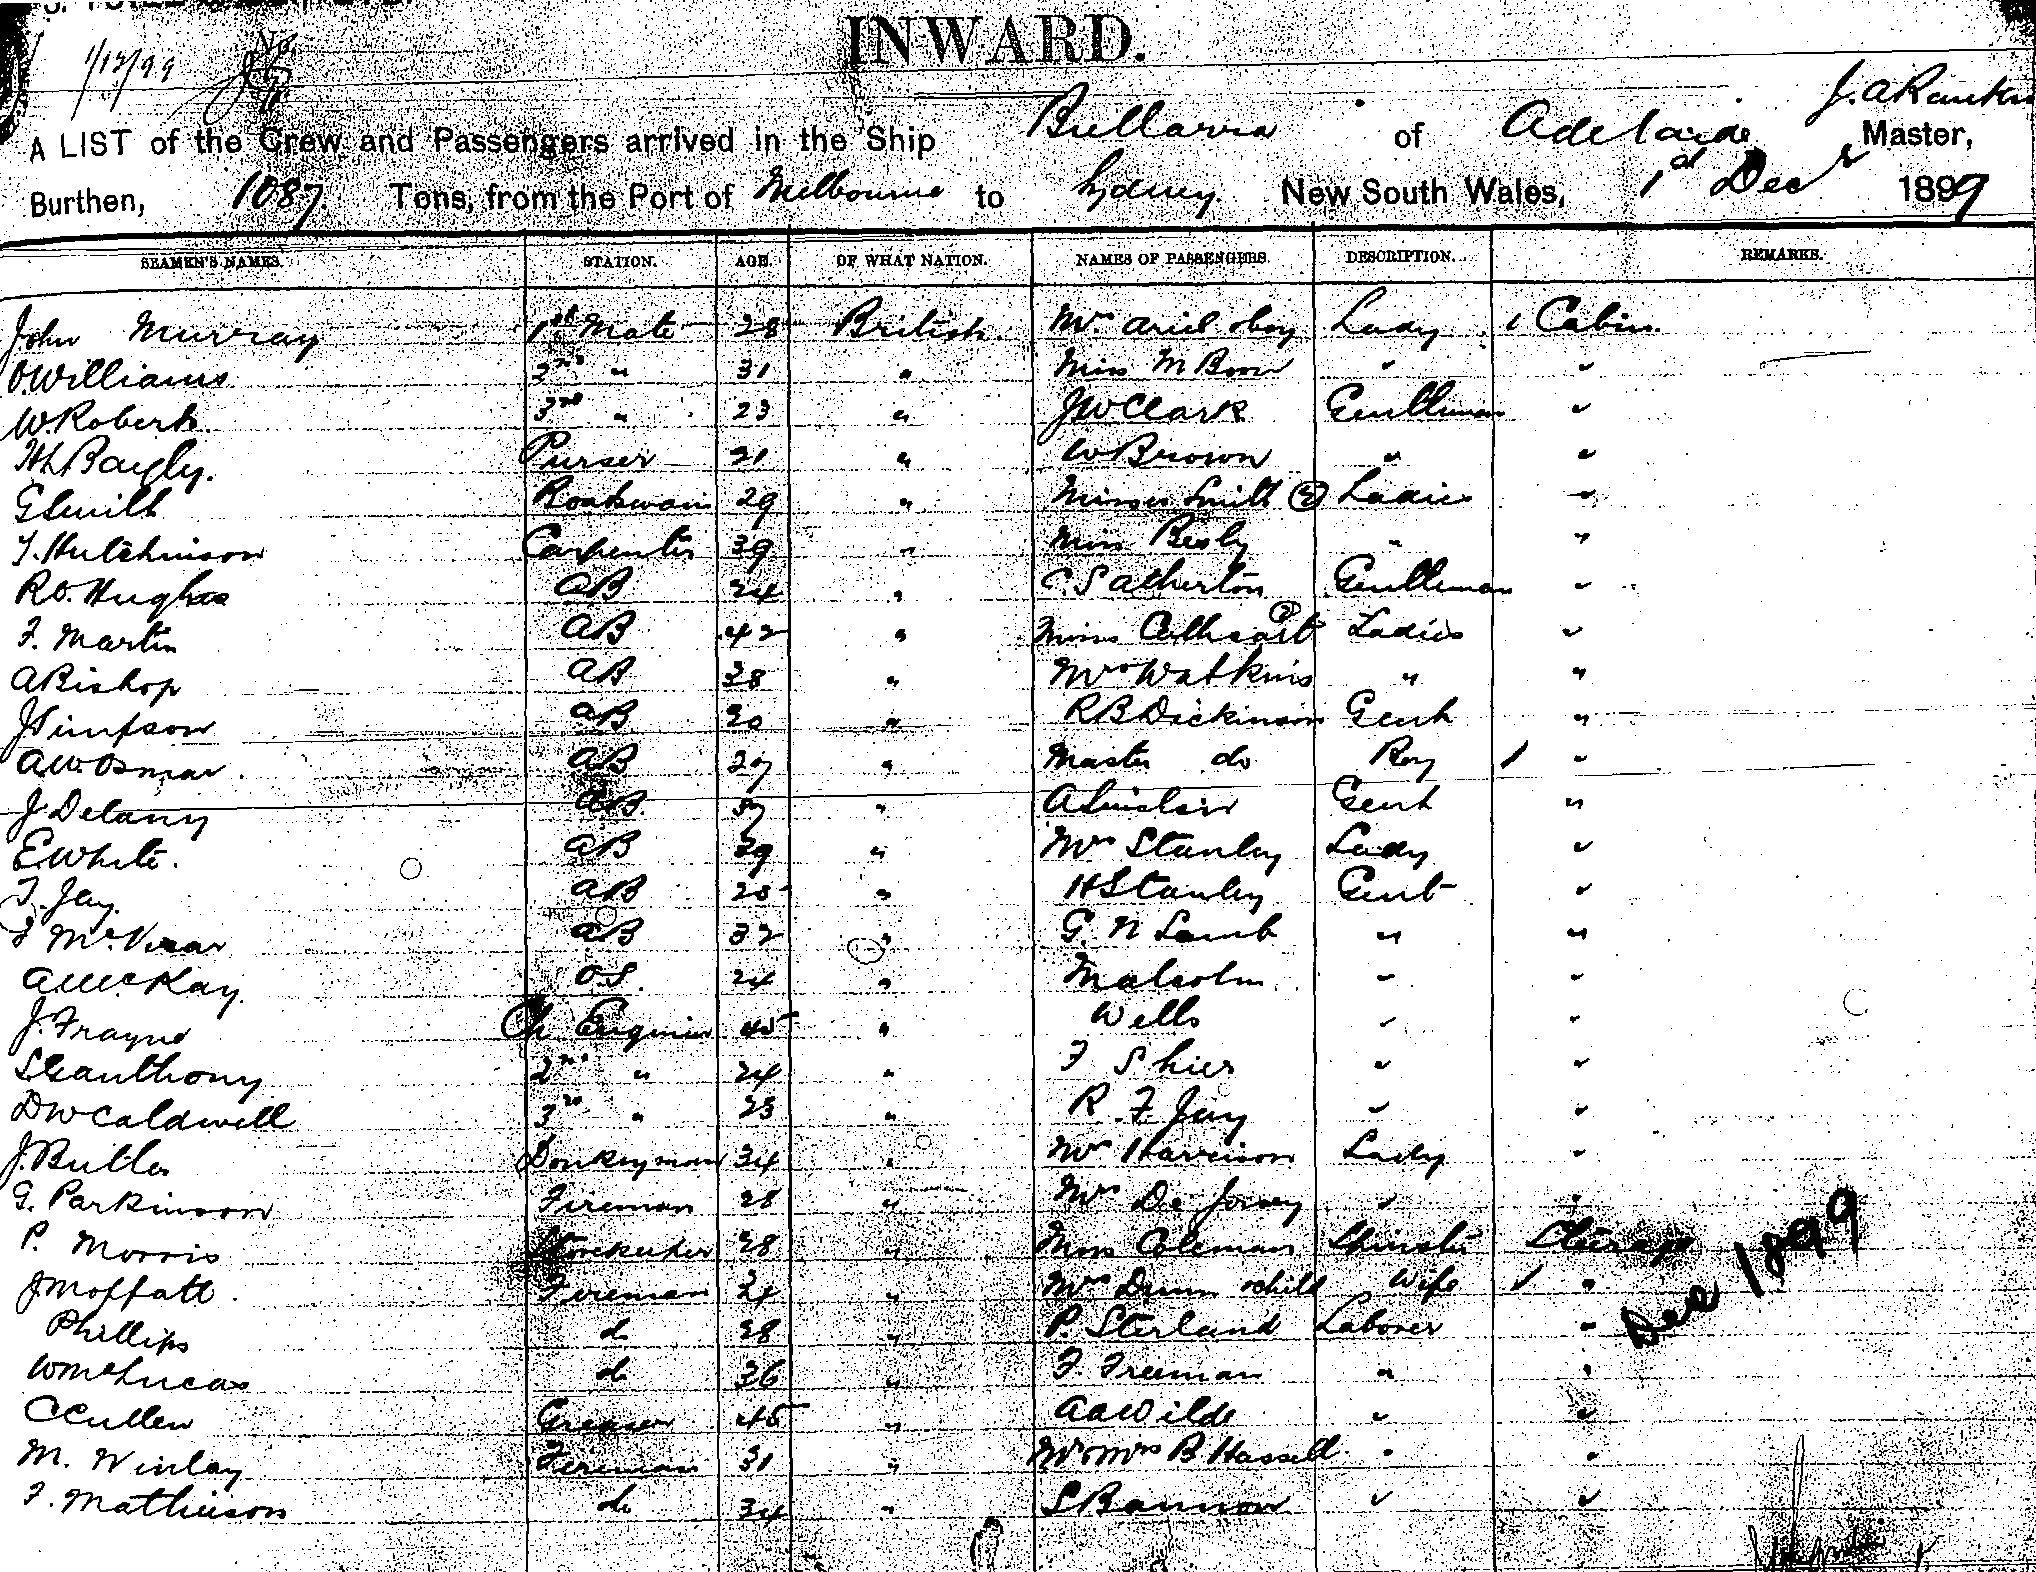 INWARD.
1/12/99
J. A Rankin
A LIST of the Crew and Passengers arrived in the Ship Bullarra of Adelaide Master,
Burthen, 1087 Tons, from the Port of Melbourne to Sydney New South Wales, 1st Decr 1899
SEAMEN'S NAMES. STATION. AGE. OF WHAT NATION. NAMES OF PASSENGERS. DESCRIPTION. REMARKS.
John Murray 1st Mate 28 British. Mrs Lady 1 Cabin.
O. Williams 2nd " 31 " Miss M " "
W. Roberts 3rd " 23 " J W Clark Gentleman "
Bayly. Purser 21 " W Brown " "
G Smith Boatswain 29 " Misses Smith (2) Ladies "
T. Hutchinson Carpenter 39 " Miss " "
R O. Hughes AB 24 " C. S Atherton Gentleman "
F. Martin AB 42 " Miss Cathcart (2) Ladies "
A Bishop AB 38 " Mrs Watkins " "
J Simpson AB 30 " R B Dickinson Gent "
A W. Osmar. AB 27 " Master do Boy 1 "
J Delany AB. 37 " A Sinclair Gent "
E White. AB 39 " Mrs Stanley Lady "
T. Jay. AB 25 " H Stanley Gent "
Mc Vicar AB 32 " G. N Lamb " "
A McKay. O.S. 24 " Malcolm " "
J. Frayne Ch Engineer 45 " Wells " "
S G Anthony 2nd " 24 " F Shier " "
D W Caldwell 3rd " 23 " R. F Jay " "
J. Butler Donkeyman 34 " Mrs Harrison Lady "
G. Parkinson Fireman 28 " Mrs De " "
P. Morris Storekeeper 28 " Miss Coleman Steerage
J Moffatt. Fireman 24 " Mrs Dunn & child Wife 1 "
Phillips do 28 " P. Sterland Laborer "
Dec 1899
W McLucas do 36 " F. Freeman " "
C Cullen Greaser 45 " A A Wilde " "
M. Winlay Fireman 31 " Mr & Mrs B Hassell " "
F. Mathieson do 34 " S Bannon " "